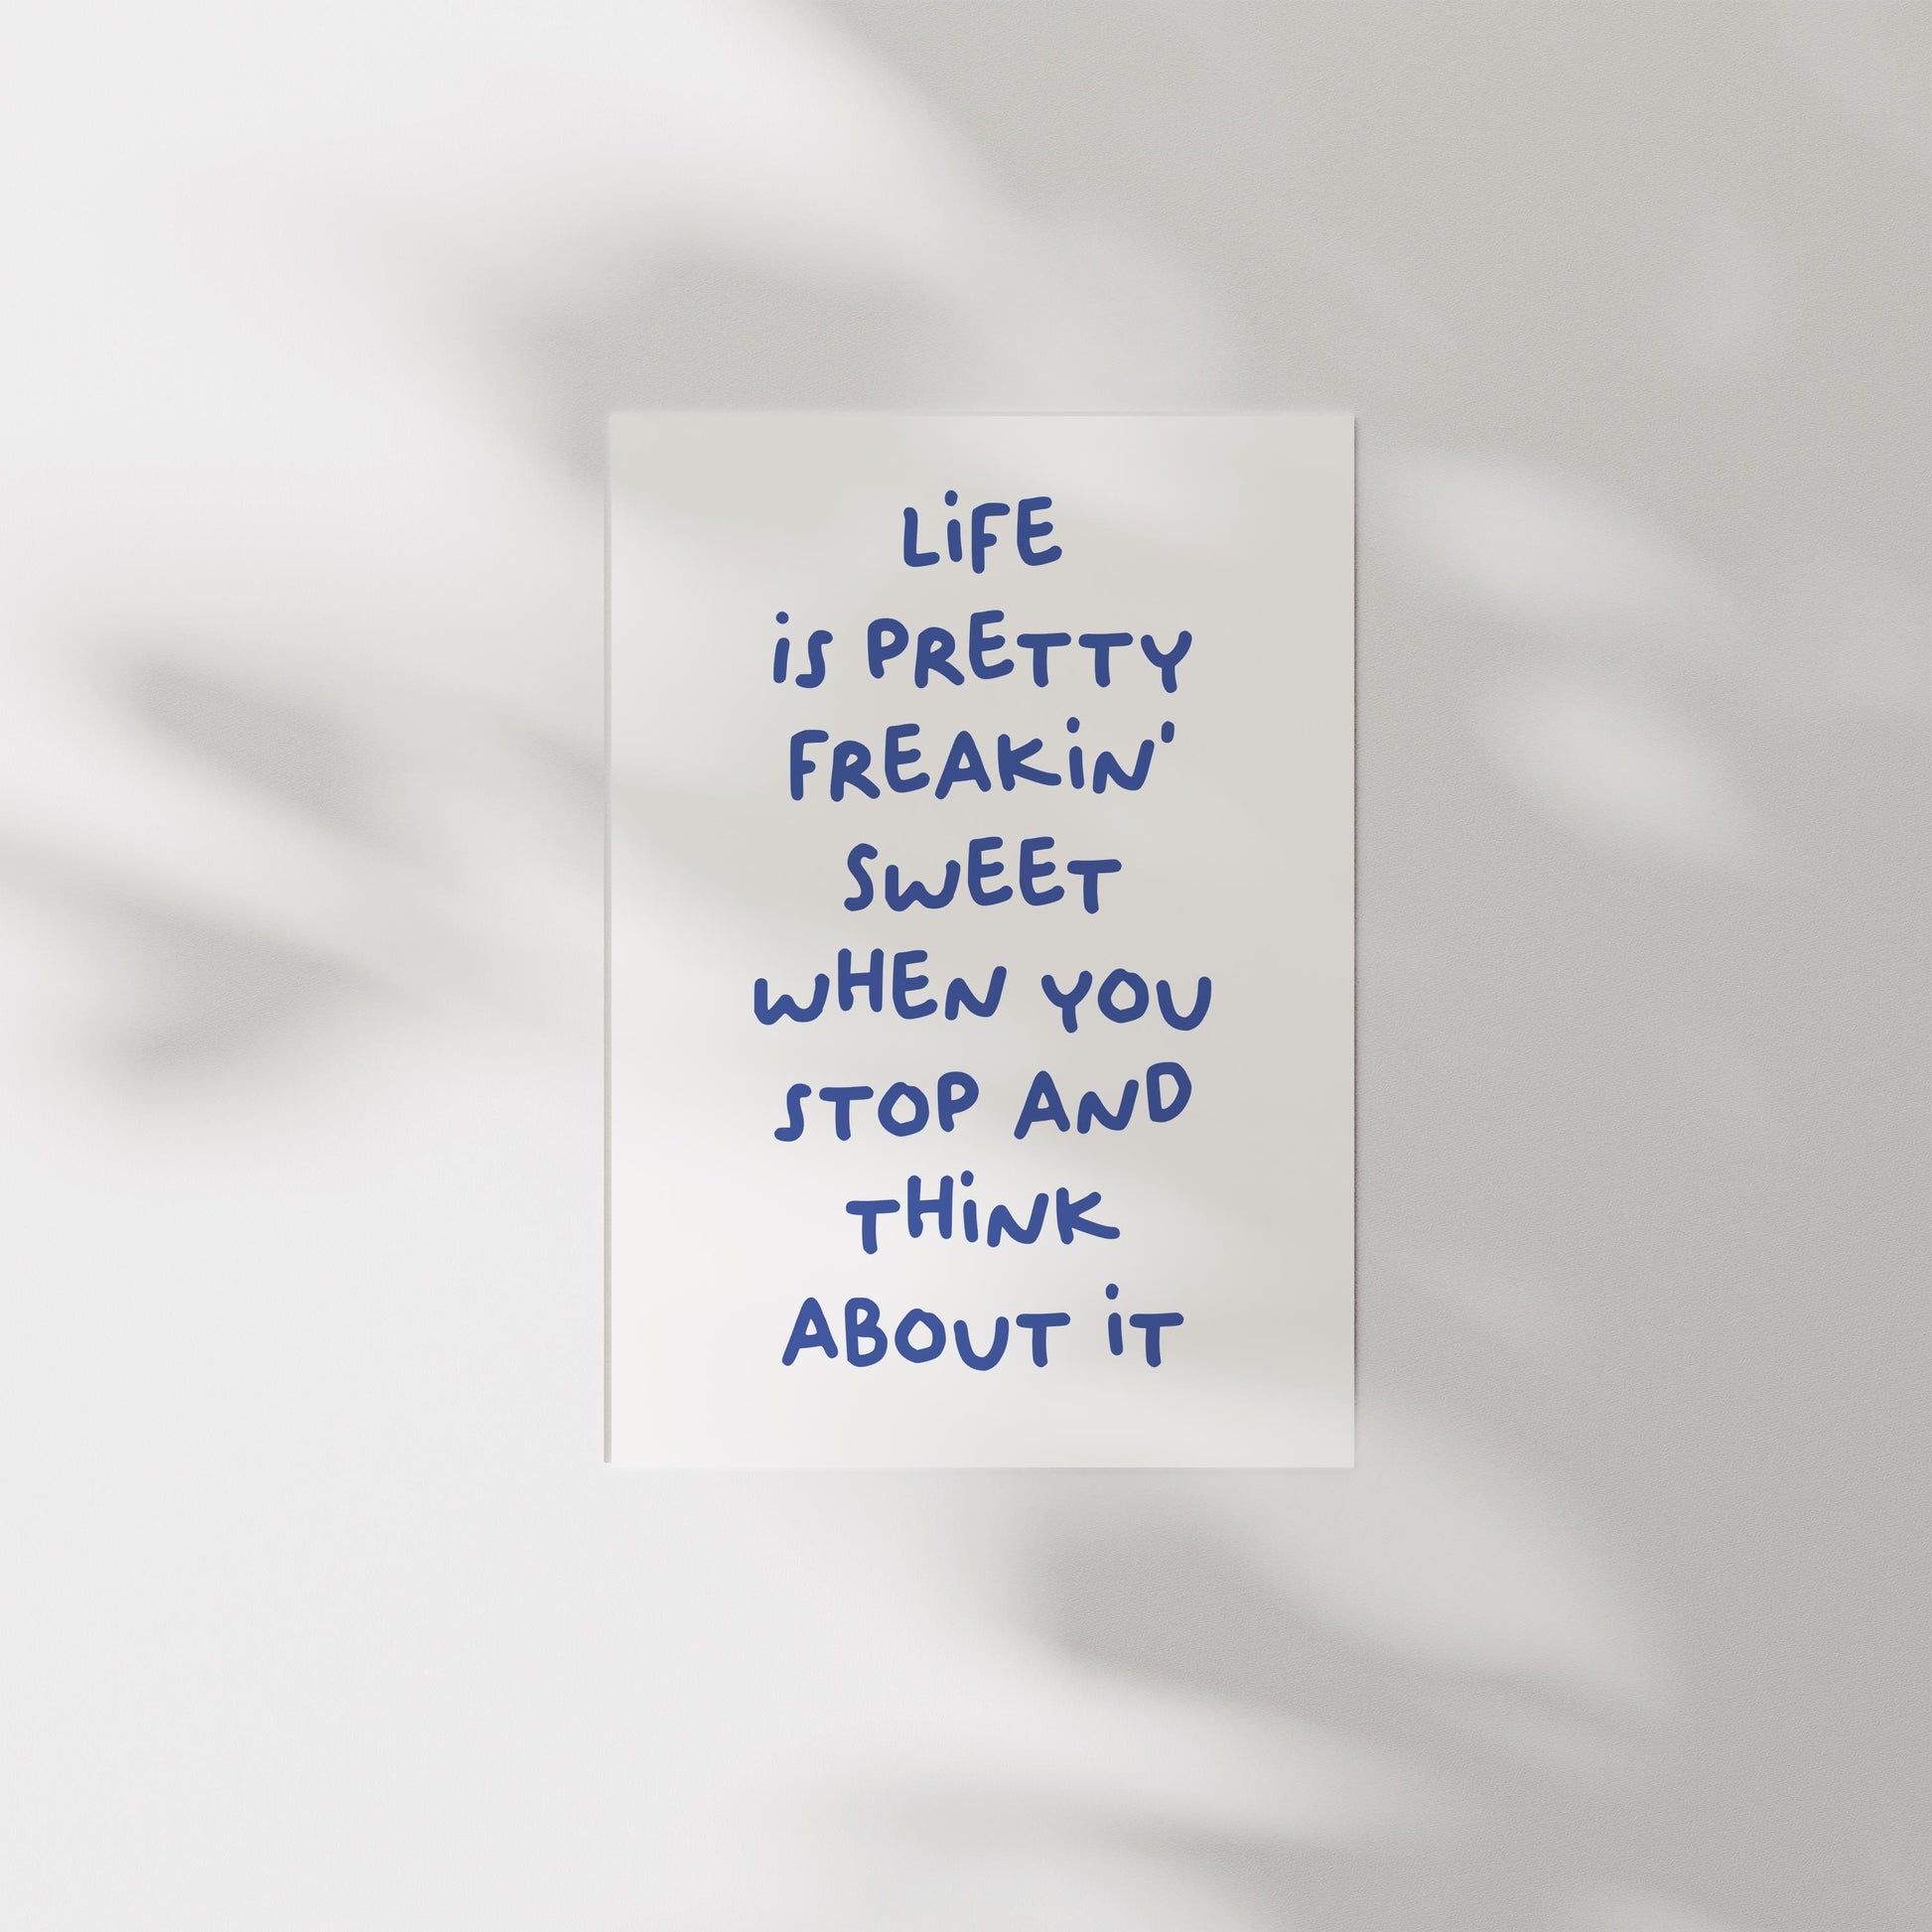 LiFE
iS PRETTY
FREAKiN'
SWEET
WHEN YOU
STOP AND
THiNK
ABOUT iT